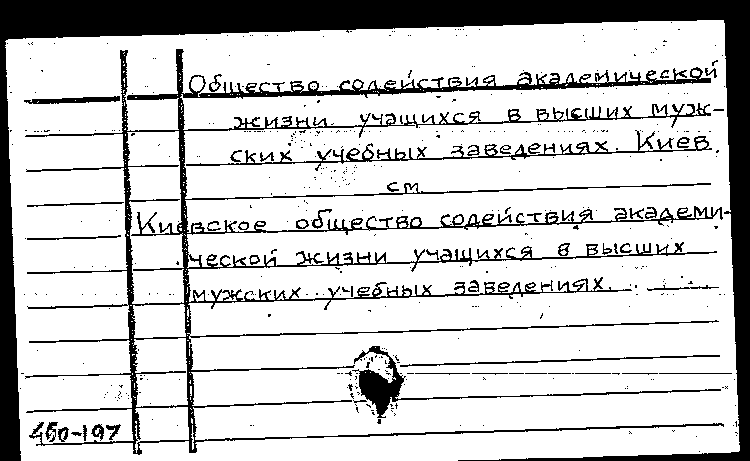 Общество содействия академической
жизни учащихся в высших муж-
ских учебных заведениях. Киев.
см.
Киевское общество содействия академи-
ческой жизни учащихся в высших
мужских учебных заведениях.
460-197